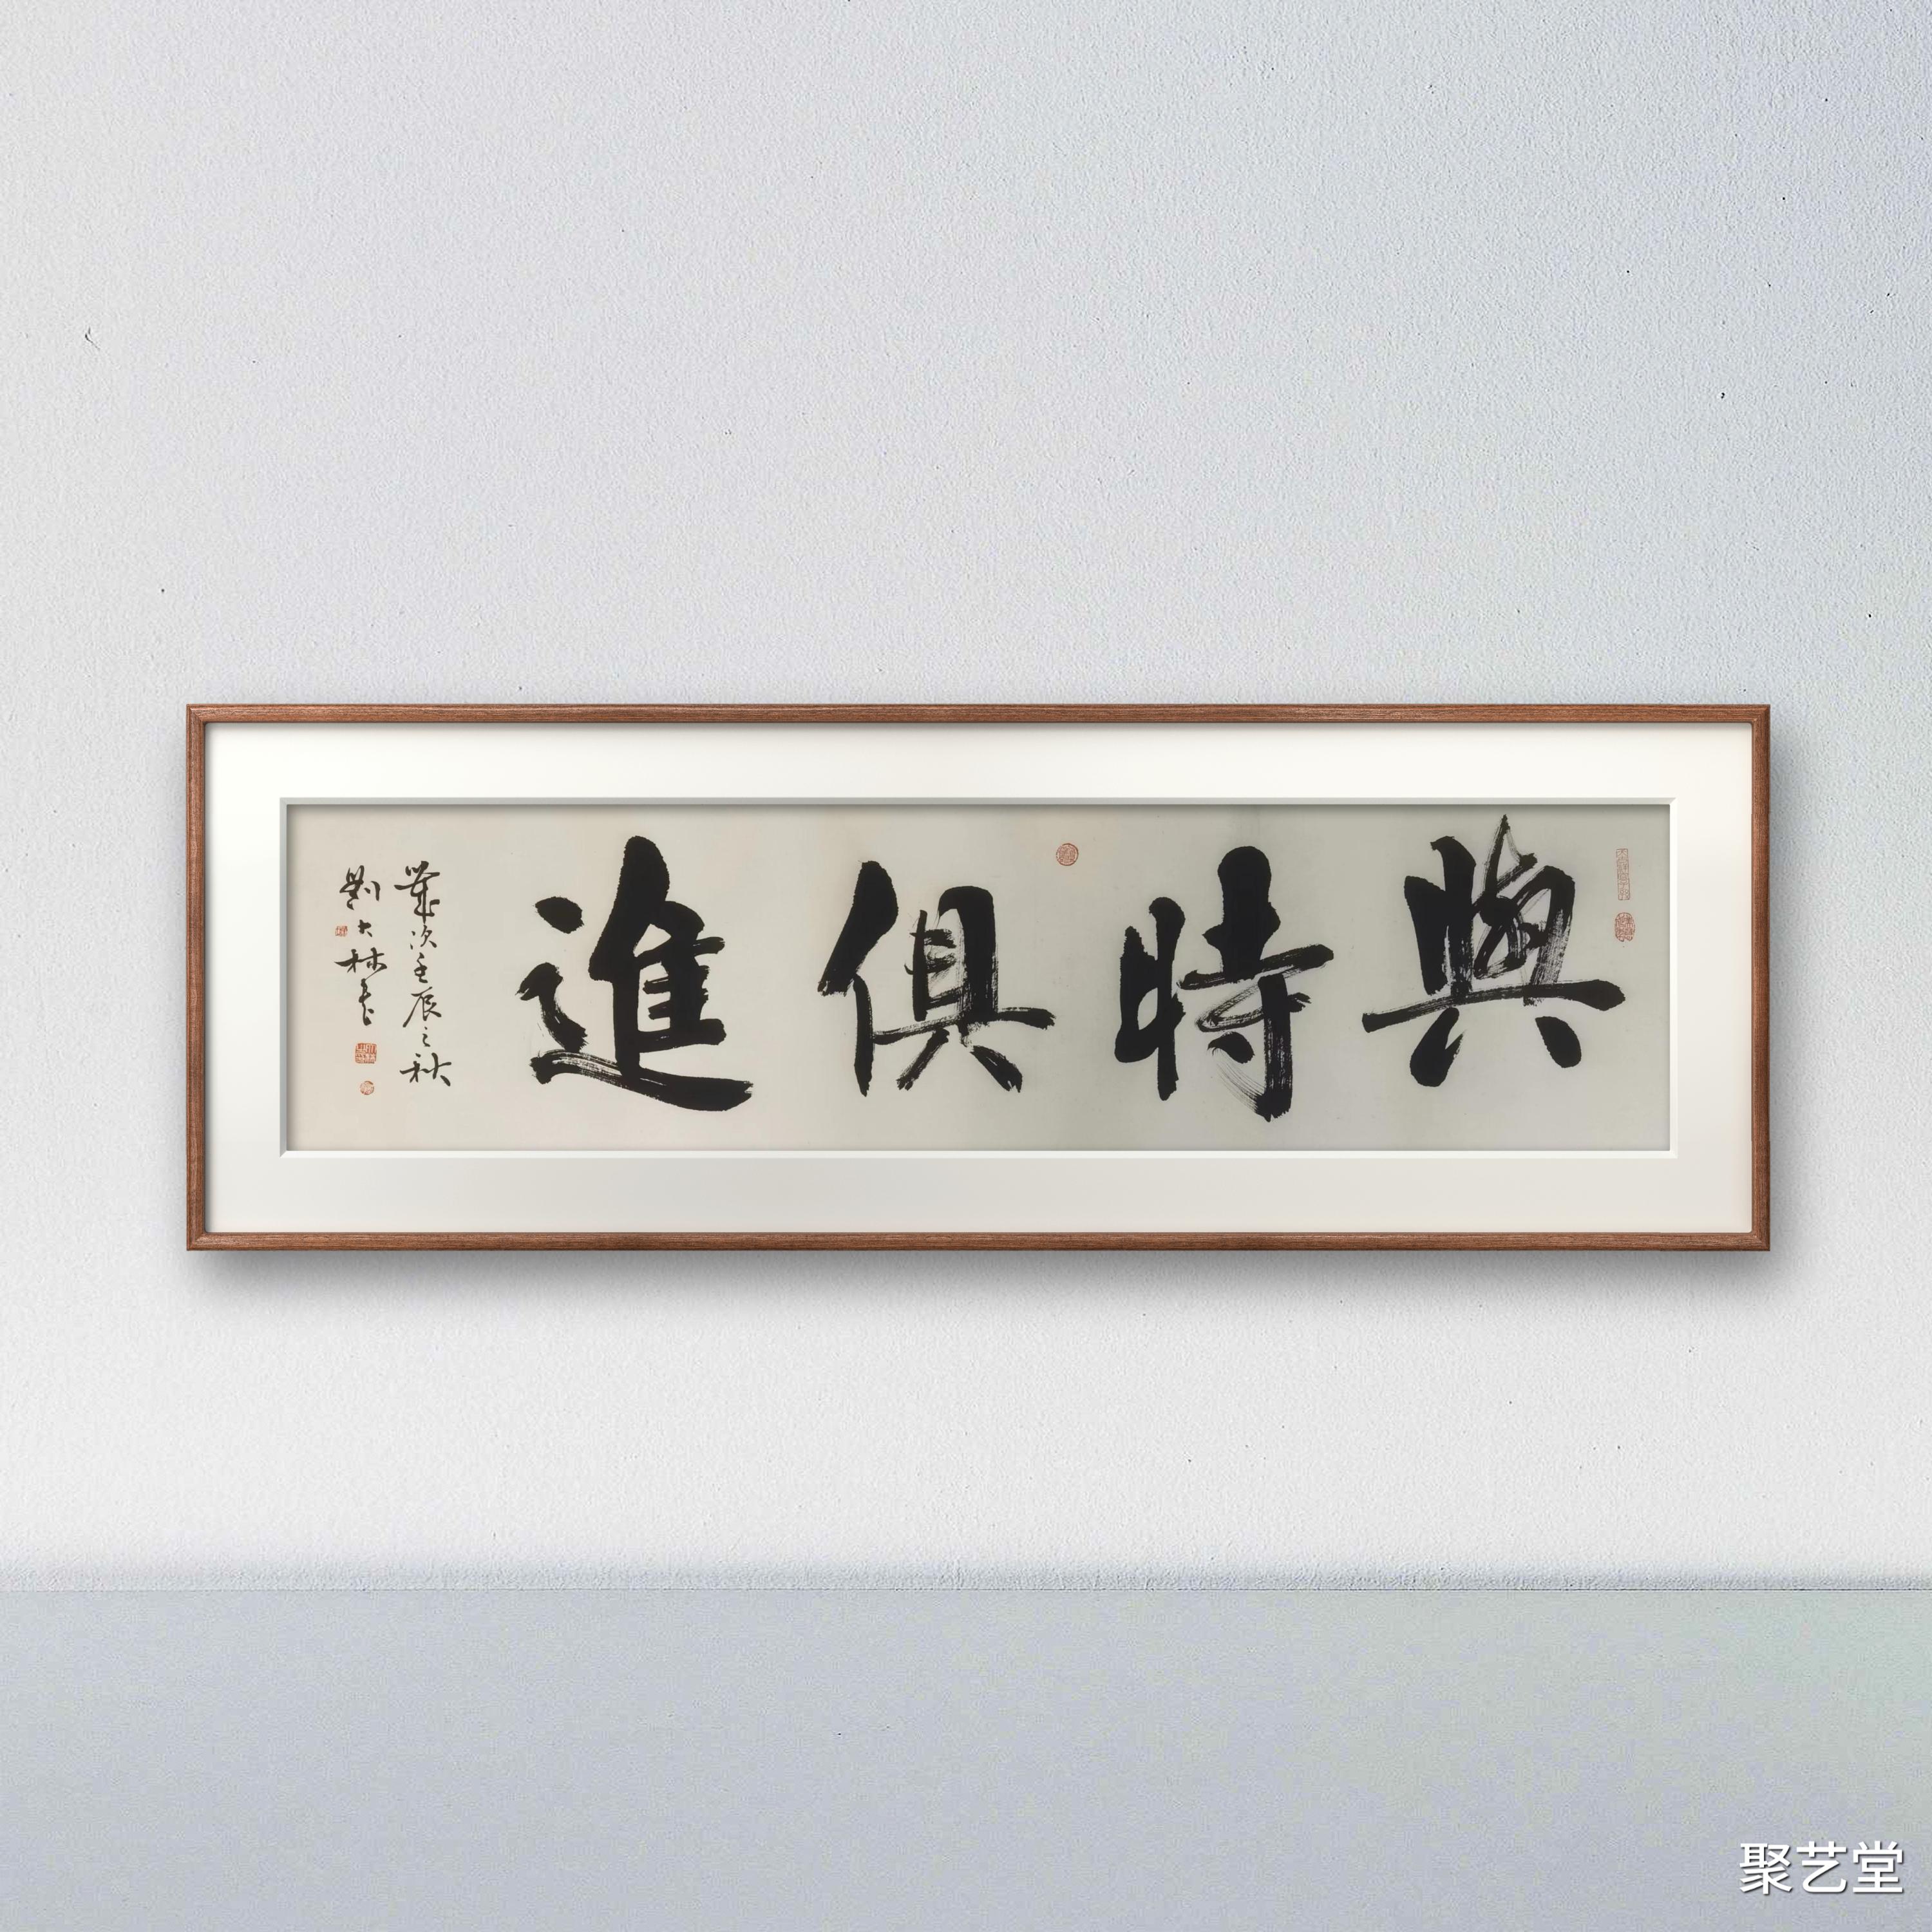 與時俱進
歲次壬辰之秋
劉大林書
聚艺堂